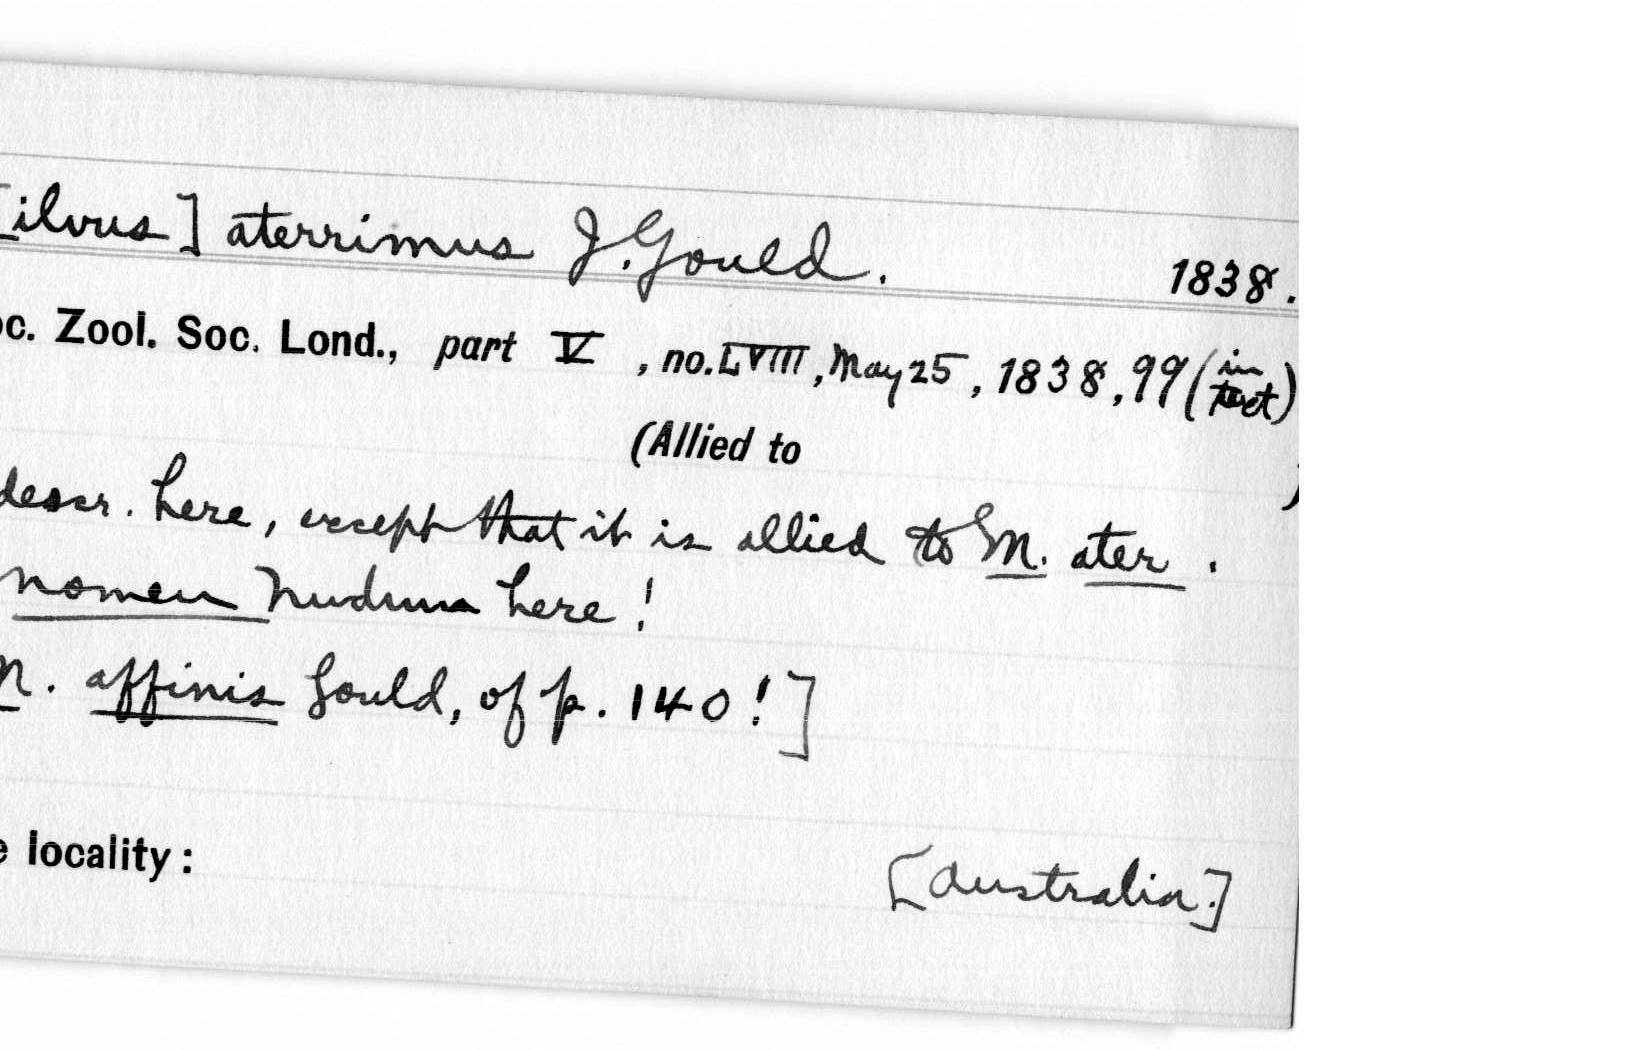 [ilvus] aterrimus J. Gould. 1838.
oc. Zool. Soc. Lond., part V, no. LVIII, May 25, 1838, 99 (in text)
(Allied to )
descr. here, except that it is allied to M. ater.
nomen nudum here!
M. affinis Gould, of p. 140!]
e locality: [Australia.]